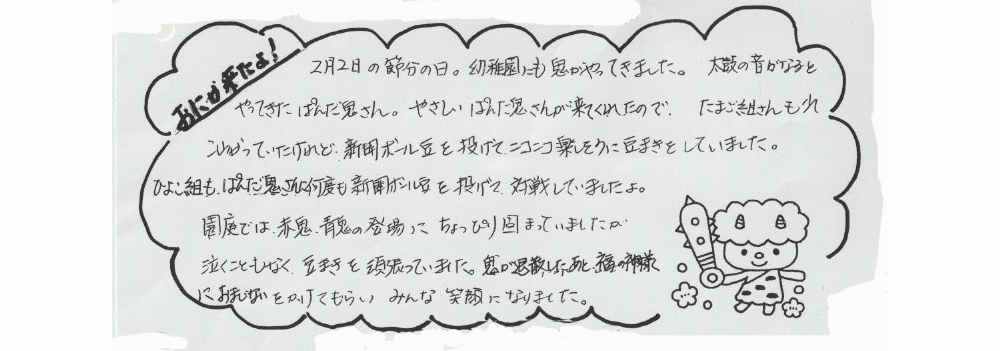 おにが来たよ!
2月2日の節分の日。幼稚園にも鬼がやってきました。 太鼓の音がなると
やってきた ぱんだ鬼さん。 やさしい ぱんだ鬼さんが来てくれたので、 たまご組さんも
こわがっていたけれど、新聞ボール豆を投げて、ニコニコ楽しそうに豆まきをしていました。
ひよこ組も、ぱんだ鬼さんに何度も新聞ボール豆を投げて、対戦していましたよ。
園庭では、赤鬼、青鬼の登場に ちょっぴり固まっていましたが
泣くこともなく、豆まきを頑張っていました。鬼が退散したあと、福の神様
におまじないをかけてもらい みんな 笑顔になりました。